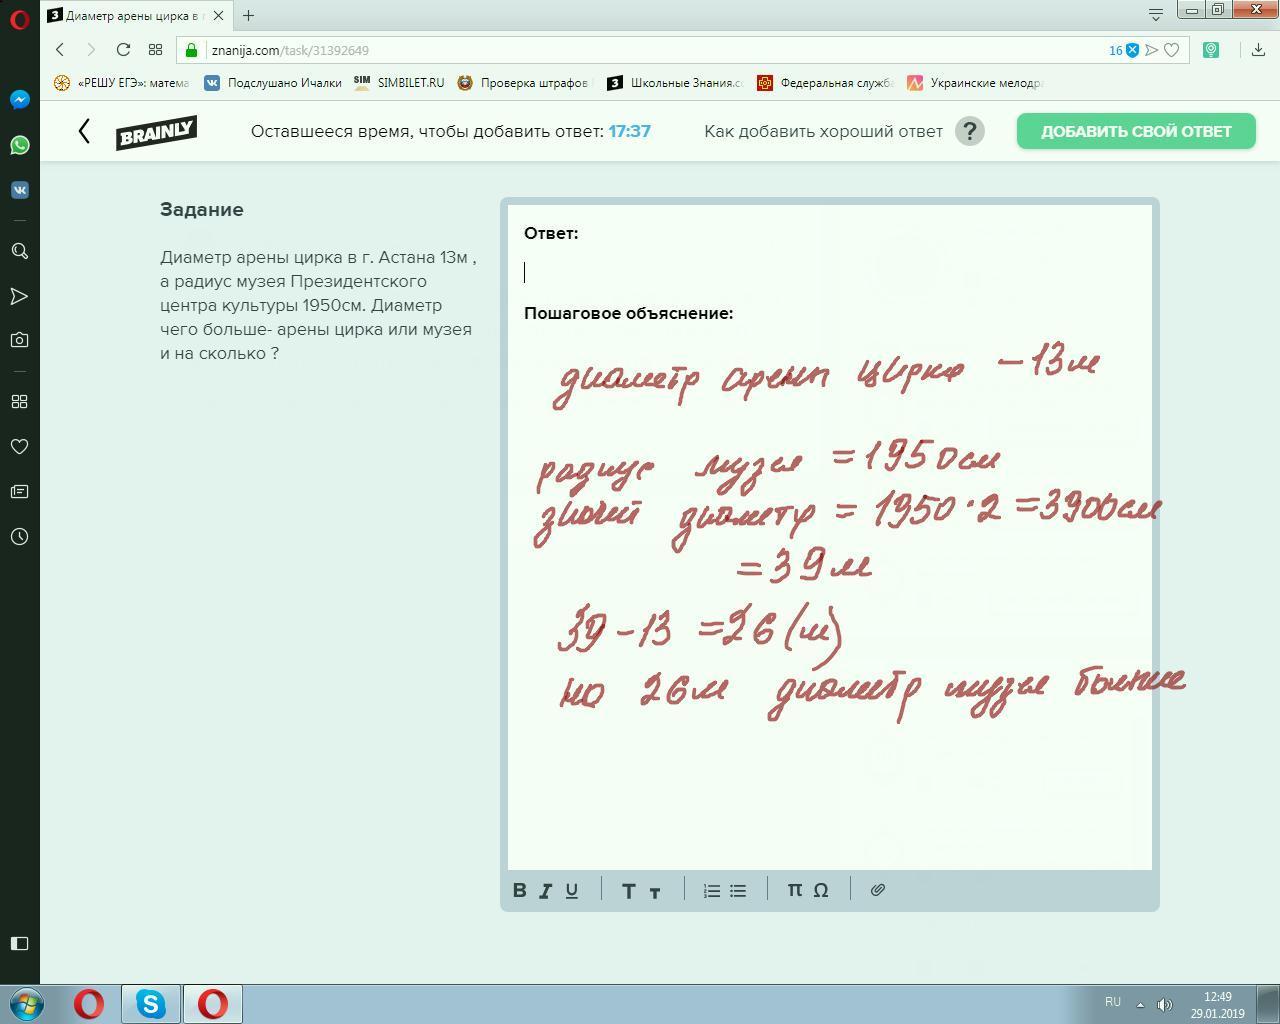 Диаметр арены цирка в г
znanija.com/task/31392649
16
«РЕШУ ЕГЭ»: матема
Подслушано Ичалки
SIM SIMBILET.RU
Проверка штрафов
Школьные Знания.co
Федеральная служба
Украинские мелодра
BRAINLY
Оставшееся время, чтобы добавить ответ: 17:37
Как добавить хороший ответ ?
ДОБАВИТЬ СВОЙ ОТВЕТ
Задание
Диаметр арены цирка в г. Астана 13м ,
а радиус музея Президентского
центра культуры 1950см. Диаметр
чего больше- арены цирка или музея
и на сколько ?
Ответ:
Пошаговое объяснение:
диаметр арены цирка – 13 м
радиус музея = 1950 см
значит диаметр = 1950 · 2 = 3900 см
= 39 м
39 – 13 = 26 (м)
на 26 м диаметр музея больше
B I U T т π Ω
RU
12:49
29.01.2019